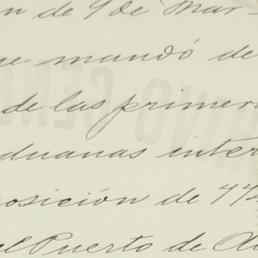 n de 9 de Mar-
e mandó de
de las primer
duanas inter
posición de 44
el Puerto de